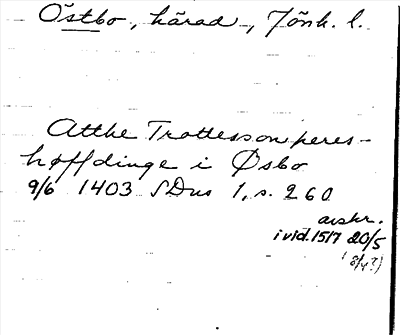 Östbo, härad, Jönk. l.
Atthe Trottesson heres-
høffdinge i Øsbo
9/6 1403 SDns 1, s. 260
avskr.
i vid. 1517 20/5
(8/4?)